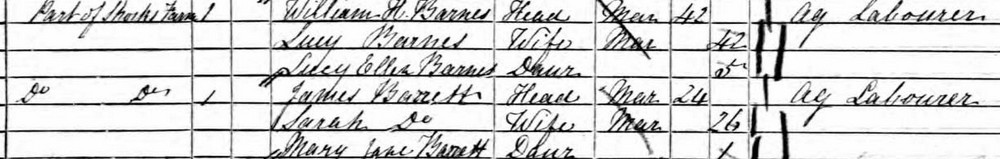 Part of Stocks Farm 1 William H. Barnes Head Mar 42 Ag Labourer
Lucy Barnes Wife Mar 42
Lucy Ellen Barnes Daur 5
Do Do 1 James Barrett Head Mar 24 Ag Labourer
Sarah Do Wife Mar 26
Mary Jane Barrett Daur